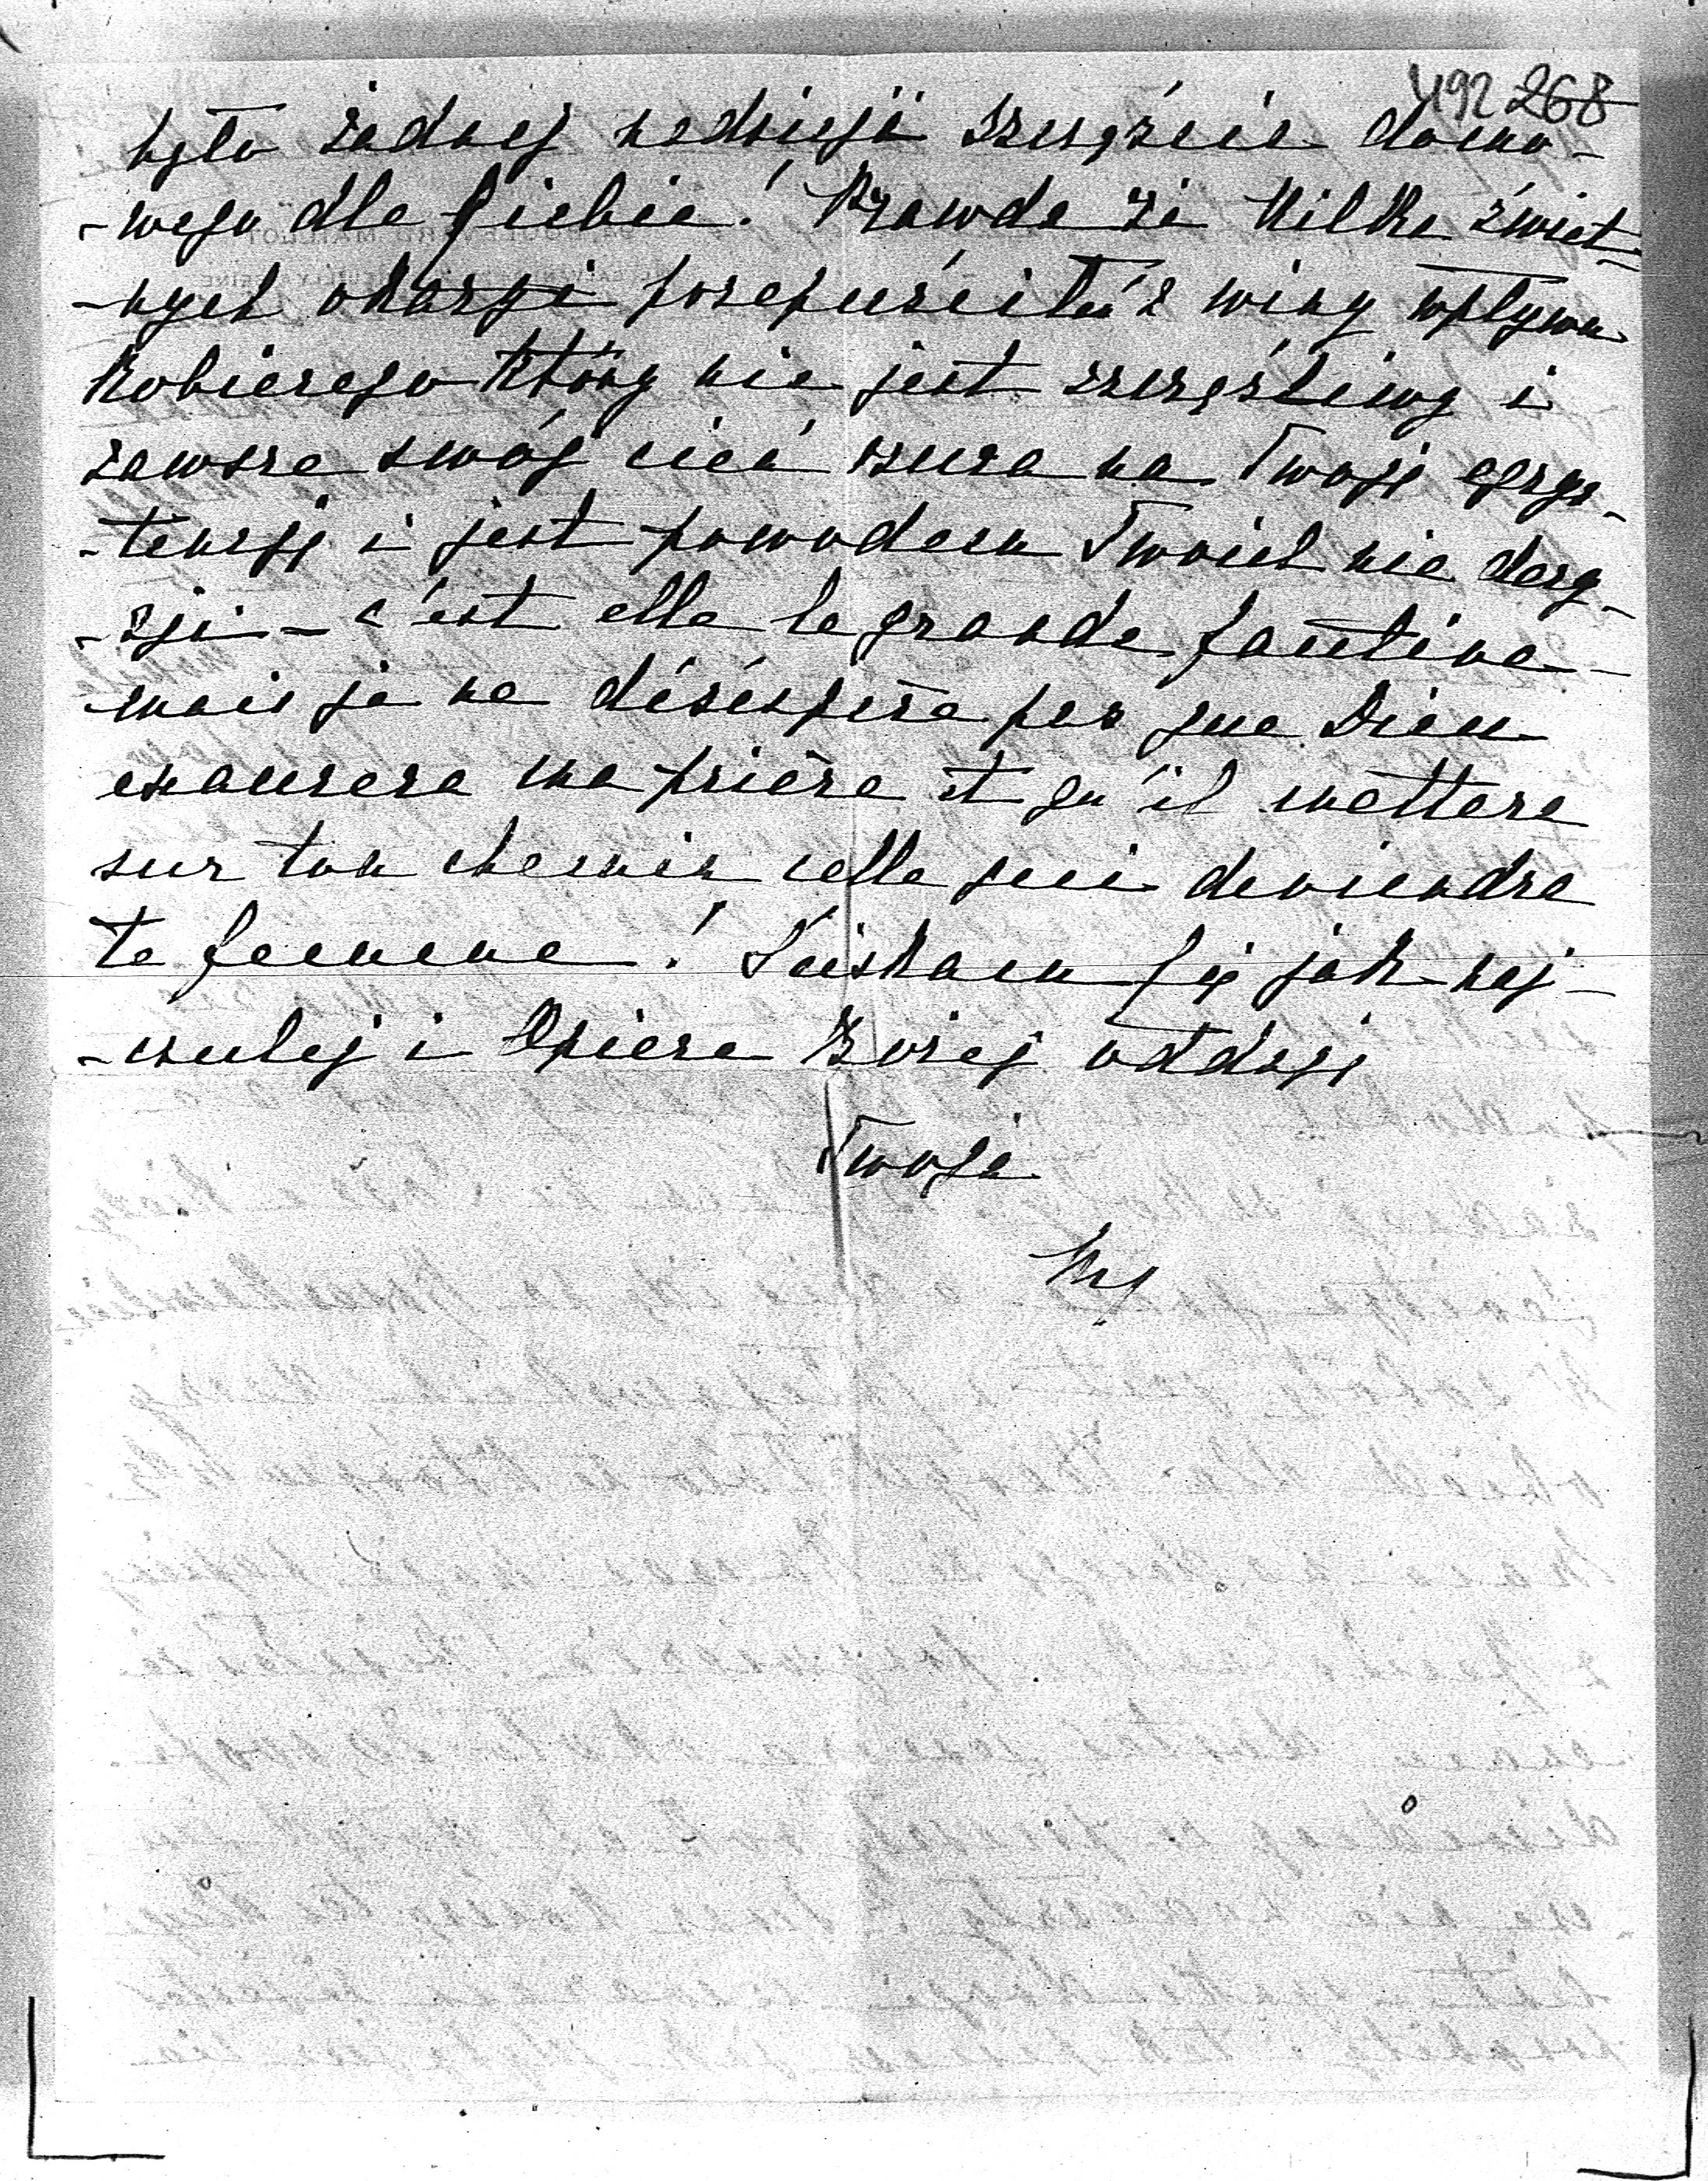 492 268
było żadnej nadzieji szczęścia domo-
-wego dla Ciebie! Prawda że kilka świet-
-nych okazyi przepuściłeś z winy wpływu
kobiecego który nie jest szczęśliwy i
zawsze swój cień rzuca na Twoję egzys-
-tencję i jest powodem Twoich nie decy-
-zji - c'est elle la grande fautive -
mais je ne déséspère pas que Dieu
exaucera ma prière et qu'il mettera
sur ton chemin celle qui deviendra
ta femme! Ściskam Cię jak naj-
-czulej i Opiece Bożej oddaję
Twoja